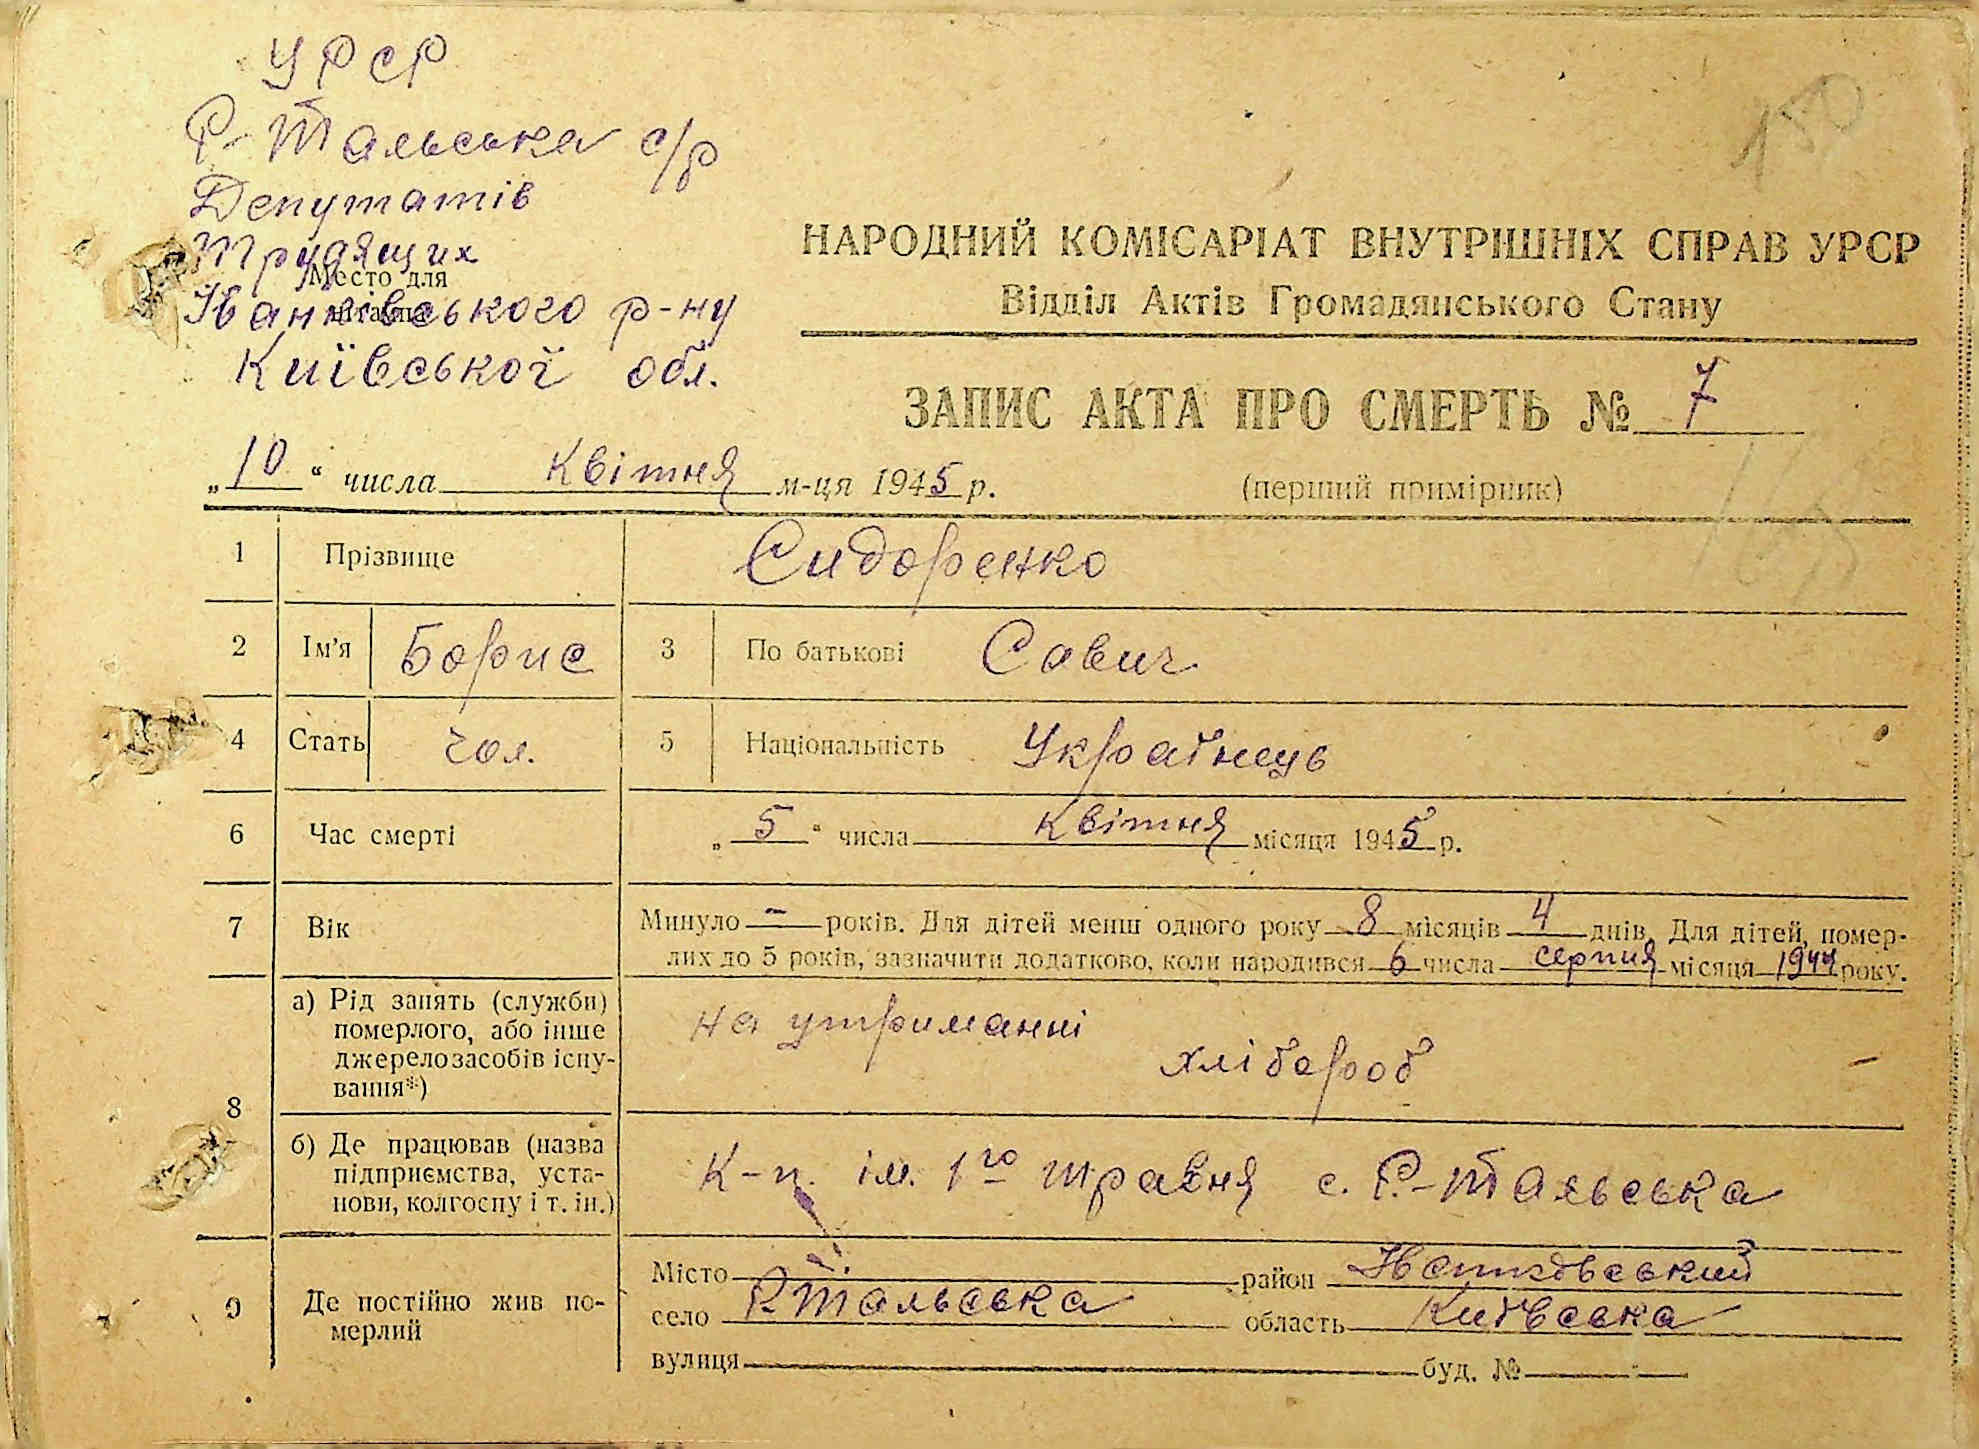 УРСР
Р-Тальська с/р
Депутатів
Трудящих
Место для
штампа
Іванківського р-ну
Київської обл.
150
НАРОДНИЙ КОМІСАРІАТ ВНУТРІШНІХ СПРАВ УРСР
Відділ Актів Громадянського Стану
ЗАПИС АКТА ПРО СМЕРТЬ № 7
„10“ числа квітня м-ця 1945 р.
(перший примірник)
1 Прізвище Сидоренко
2 Ім'я Борис 3 По батькові Савич
4 Стать чол. 5 Національність Українець
6 Час смерті „5“ числа квітня місяця 1945 р.
7 Вік Минуло - років. Для дітей менш одного року 8 місяців 4 днів. Для дітей, помер-
лих до 5 років, зазначити додатково, коли народився 6 числа серпня місяця 1944 року.
8 а) Рід занять (служби)
померлого, або інше
джерело засобів існу-
вання*)
на утриманні
хлібороб
б) Де працював (назва
підприємства, уста-
нови, колгоспу і т. ін.)
К-п. ім. 1го травня с. Р.-Тальська
9 Де постійно жив по-
мерлий
Місто район Іванковський
село Р.Тальська область Київська
вулиця буд. №